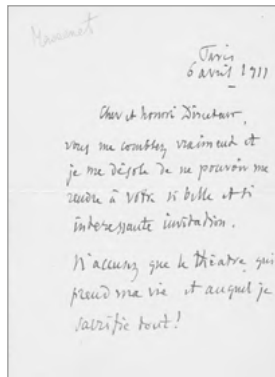 Massenet
Paris
6 avril 1911
Cher et honoré Directeur,
vous me comblez vraiment et
je me désole de ne pouvoir me
rendre à votre si belle et si
intéressante invitation.
N'accusez que le théâtre qui
prend ma vie et auquel je
sacrifie tout!